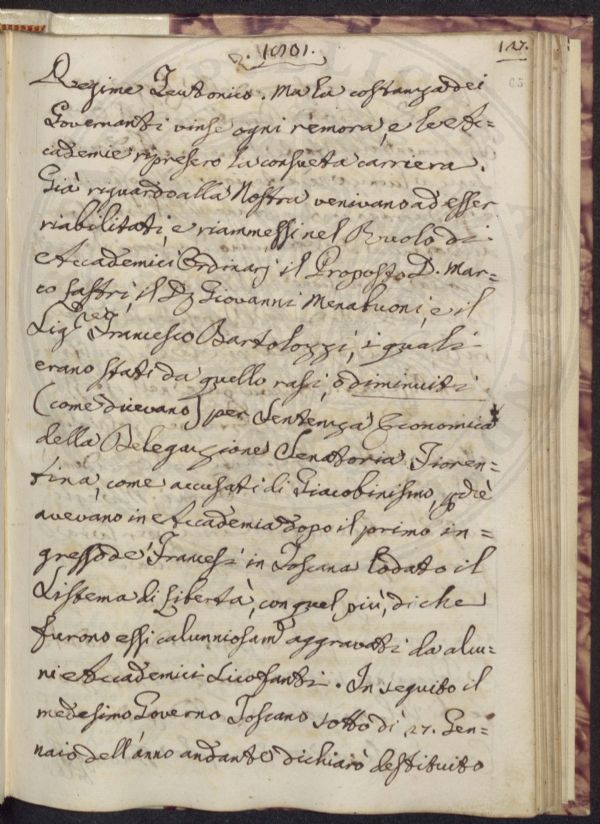 1801.
127.
65
Regime Teutonico. Ma la costanza dei
Governanti vinse ogni remora, e le Ac=
cademie ripresero la consueta carriera.
Già riguardo alla Nostra venivano ad esser
riabilitati, e riammessi nel Ruolo di
Accademici Ordinarj il Proposto D. Mar=
co Lastri, il D. Giovanni Menabuoni, e il
Sig.re Francesco Bartolozzi, i quali
erano stati da quello rasi, o diminuiti
(come dicevano) per Sentenza Economica
della Delegazione Senatoria Fioren=
tina, come accusati di Giacobinismo, perchè
avevano in Accademia dopo il primo in=
gresso de' Francesi in Toscana lodato il
Sistema di Libertà, con quel più, di che
furono essi calunniosam.e aggravati da alcu=
ni Accademici Sicofanti. In seguito il
medesimo Governo Toscano sotto dì 27. Gen=
naio dell'anno andante dichiarò destituito